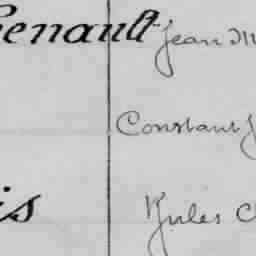 Renault Jean M
Constant J
is Jules C